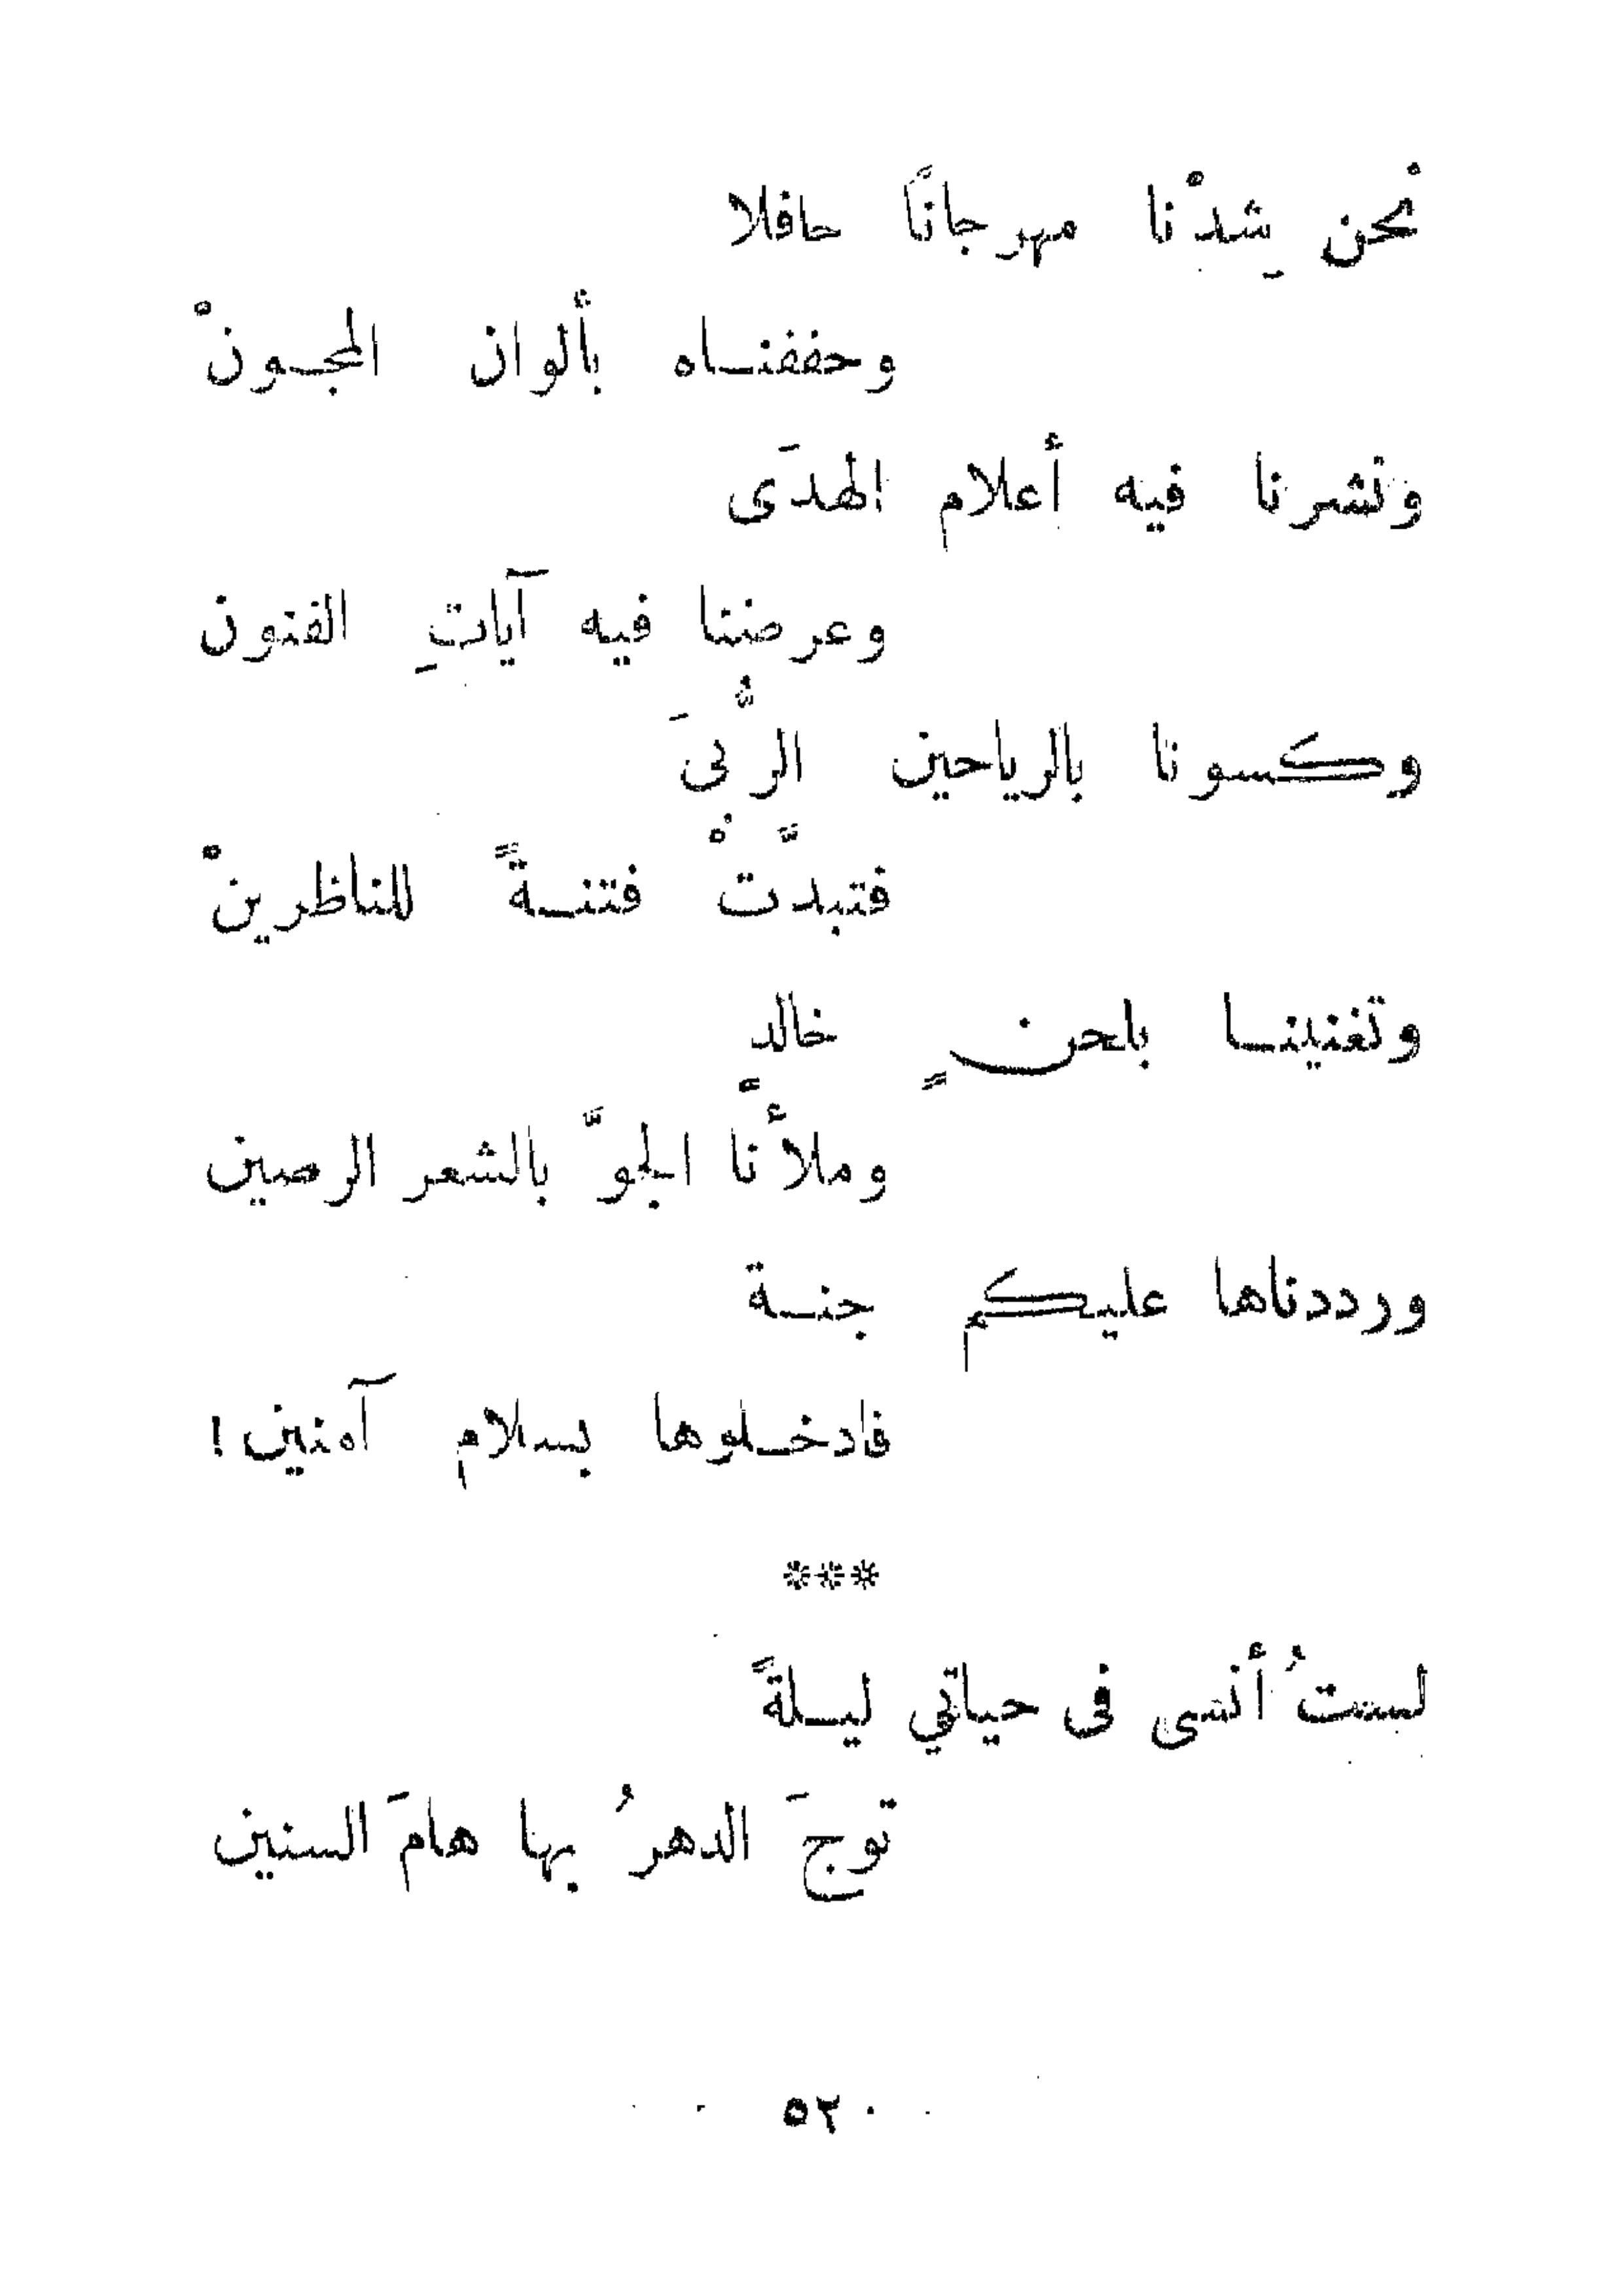 نحْن شِدْنا مهرجانًا حافلا
وحففناه بألوان المجونْ
ونشرنا فيه أعلام الهدَى
وعرضنا فيه آياتِ الفنون
وكسونا بالرياحين الرُّبىَ
فتبدَّتْ فتنةً للناظرينْ
وتغنينا بلحنٍ خالد
وملأْنا الجوَّ بالشعر الرصين
ورددناها عليكم جنة
فادخلوها بسلام آمنين!
***
لستُ أنسى فى حياتي ليلةً
توجَ الدهرُ بها هامَ السنين
٥٢٠